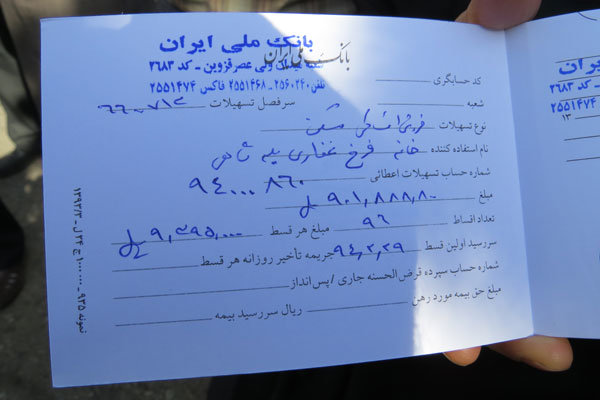 بانک ملی ایران
بانک ملی ایران
شعبه ولی عصر قزوین - کد ۲۶۸۳
تلفن: ۲۵۶۰۲۴۰ - ۲۵۵۱۴۶۸ فاکس ۲۵۵۱۴۷۴
کد حسابگری
شعبه سرفصل تسهیلات ۶۶۰۷۱۲
نوع تسهیلات فروش اقساطی مسکن
نام استفاده کننده خانم فرخ غفاری
شماره حساب تسهیلات اعطائی ۹۴۰۰۰۸۶۰
مبلغ ۹۰۱,۸۸۸,۸۰
تعداد اقساط ۹۶ مبلغ هر قسط ۹,۳۹۵,۰۰۰
سررسید اولین قسط ۹۴,۲,۲۹ جریمه تأخیر روزانه هر قسط
شماره حساب سپرده قرض‌الحسنه جاری / پس‌انداز
مبلغ حق بیمه مورد رهن ریال سررسید بیمه
نمونه ۹۳۵
ایران
کد ۲۶۸۳
۲۵۵۱۴۷۴
۱۳